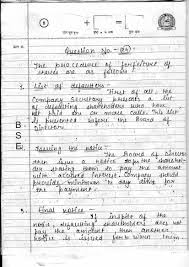 Question No. - (24)
The procedure of forfeiture of
shares are as follows
1. List of defaulters :- First of all, the
Company Secretary presents a list
of defaulting shareholders who have
not paid one or more calls. This list
is presented before the Board of
Directors.
B
S
E
Issuing the notice :- The Board of Directors
then issue a notice to the shareholder
asking them to pay the amount
with accrued interest. Company should
provide minimum 14 days time for
the payment.
3. Final notice :- If inspite of the
notice, defaulting shareholders does not
pay the amount then another
notice is issued